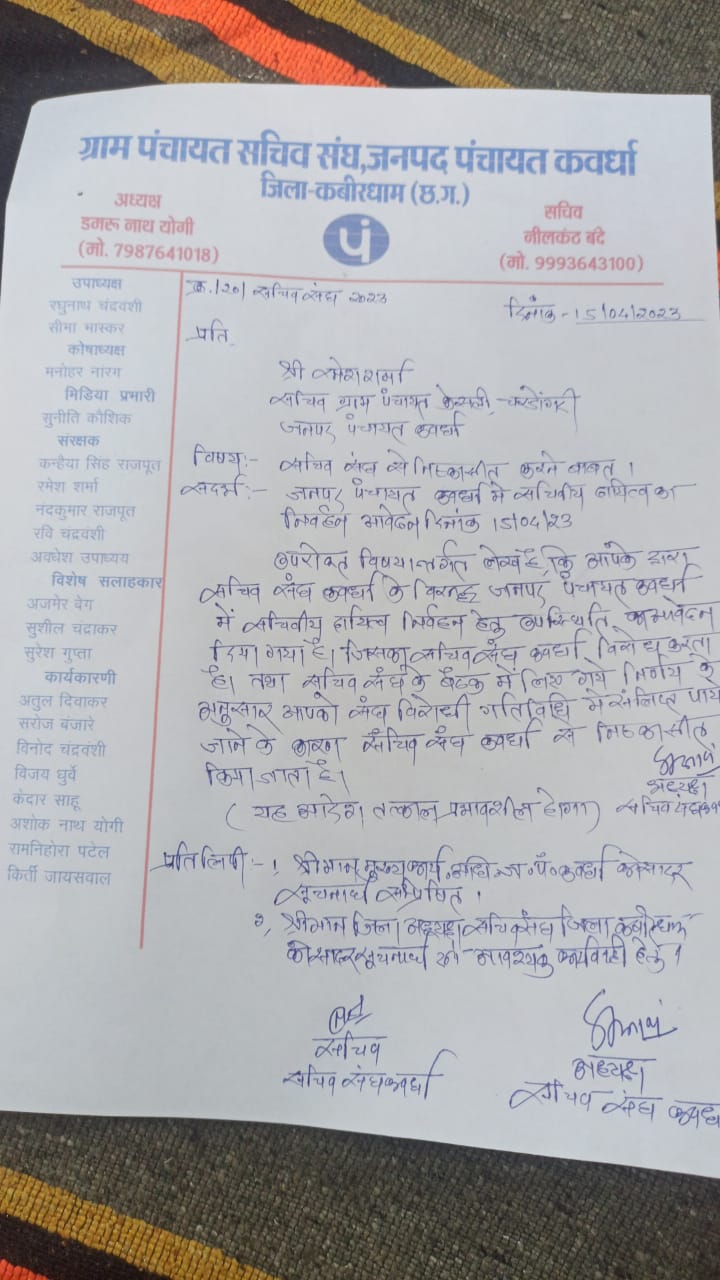 ग्राम पंचायत सचिव संघ,जनपद पंचायत कवर्धा
जिला-कबीरधाम (छ.ग.)
अध्यक्ष
डमरू नाथ योगी
(मो. 7987641018)
पं
सचिव
नीलकंठ बंदे
(मो. 9993643100)
उपाध्यक्ष
रघुनाथ चंद्रवंशी
सीमा भास्कर
कोषाध्यक्ष
मनोहर नारंग
मिडिया प्रभारी
सुनीति कौशिक
संरक्षक
कन्हैया सिंह राजपूत
रमेश शर्मा
नंदकुमार राजपूत
रवि चंद्रवंशी
अवधेश उपाध्याय
विशेष सलाहकार
अजमेर बेग
सुशील चंद्राकर
सुरेश गुप्ता
कार्यकारिणी
अतुल दिवाकर
सरोज बंजारे
विनोद चंद्रवंशी
विजय धुर्वे
केदार साहू
अशोक नाथ योगी
रामनिहोरा पटेल
किर्ती जायसवाल
क्र./20/ सचिव संघ 2023
दिनांक - 15/04/2023
प्रति,
श्री रमेश शर्मा
सचिव ग्राम पंचायत
जनपद पंचायत कवर्धा
विषय:- सचिव संघ से निष्कासीत करने बाबत ।
संदर्भ:- जनपद पंचायत कवर्धा में सचिवीय दायित्व का
निर्वहन आवेदन दिनांक 15/04/23
उपरोक्त विषयान्तर्गत लेख है कि आपके द्वारा
सचिव संघ कवर्धा के विरुद्ध जनपद पंचायत कवर्धा
में सचिवीय दायित्व निर्वहन हेतु उपस्थिति का आवेदन
दिया गया है। जिसका सचिव संघ कवर्धा विरोध करता
है। तथा सचिव संघ के बैठक में लिए गये निर्णय के
अनुसार आपको संघ विरोधी गतिविधि में संलिप्त पाये
जाने के कारण सचिव संघ कवर्धा से निष्कासीत
किया जाता है।
अध्यक्ष
(यह आदेश तत्काल प्रभावशील होगा) सचिव संघ
प्रतिलिपी:- 1. श्रीमान मुख्य कार्य. अधि. ज. पं. कवर्धा को सादर
सूचनार्थ संप्रेषित ।
2, श्रीमान जिला अध्यक्ष सचिव संघ जिला कबीरधाम
को सादर सूचनार्थ एवं आवश्यक कार्यवाही हेतु ।
सचिव
सचिव संघ कवर्धा
अध्यक्ष
सचिव संघ कवर्धा